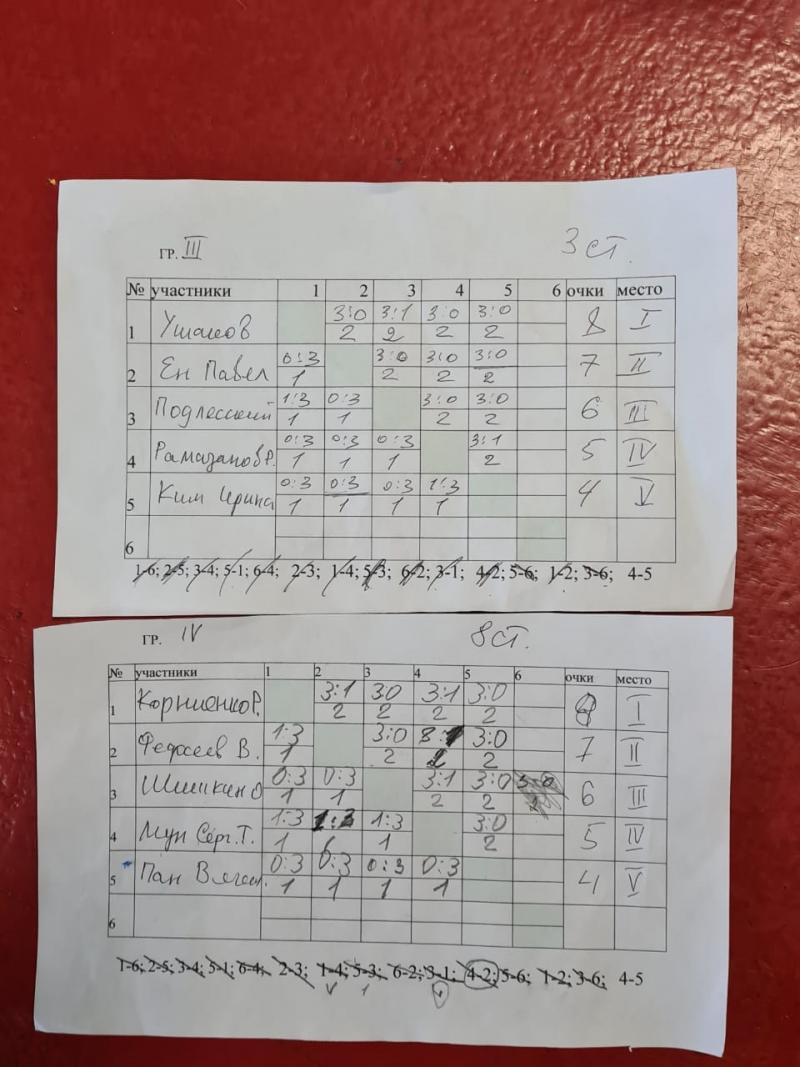 ГР. III 3 ст.
№ участники 1 2 3 4 5 6 очки место
1 Ушаков 3:0 3:1 3:0 3:0 8 I
2 2 2 2
2 Ен Павел 0:3 3:0 3:0 3:0 7 II
1 2 2 2
3 Подлесский 1:3 0:3 3:0 3:0 6 III
1 1 2 2
4 Рамазанов Р. 0:3 0:3 0:3 3:1 5 IV
1 1 1 2
5 Ким Ирина 0:3 0:3 0:3 1:3 4 V
1 1 1 1
6
1-6; 2-5; 3-4; 5-1; 6-4; 2-3; 1-4; 5-3; 6-2; 3-1; 4-2; 5-6; 1-2; 3-6; 4-5
ГР. IV 8 ст.
№ участники 1 2 3 4 5 6 очки место
1 Корниенко Р. 3:1 3:0 3:1 3:0 8 I
2 2 2 2
2 Федосеев В. 1:3 3:0 3:1 3:0 7 II
1 2 2 2
3 Шишкин О 0:3 0:3 3:1 3:0 6 III
1 1 2 2
4 Мун Серг. Т. 1:3 1:3 1:3 3:0 5 IV
1 1 1 2
5 Пан 0:3 0:3 0:3 0:3 4 V
1 1 1 1
6
1-6; 2-5; 3-4; 5-1; 6-4; 2-3; 1-4; 5-3; 6-2; 3-1; 4-2; 5-6; 1-2; 3-6; 4-5